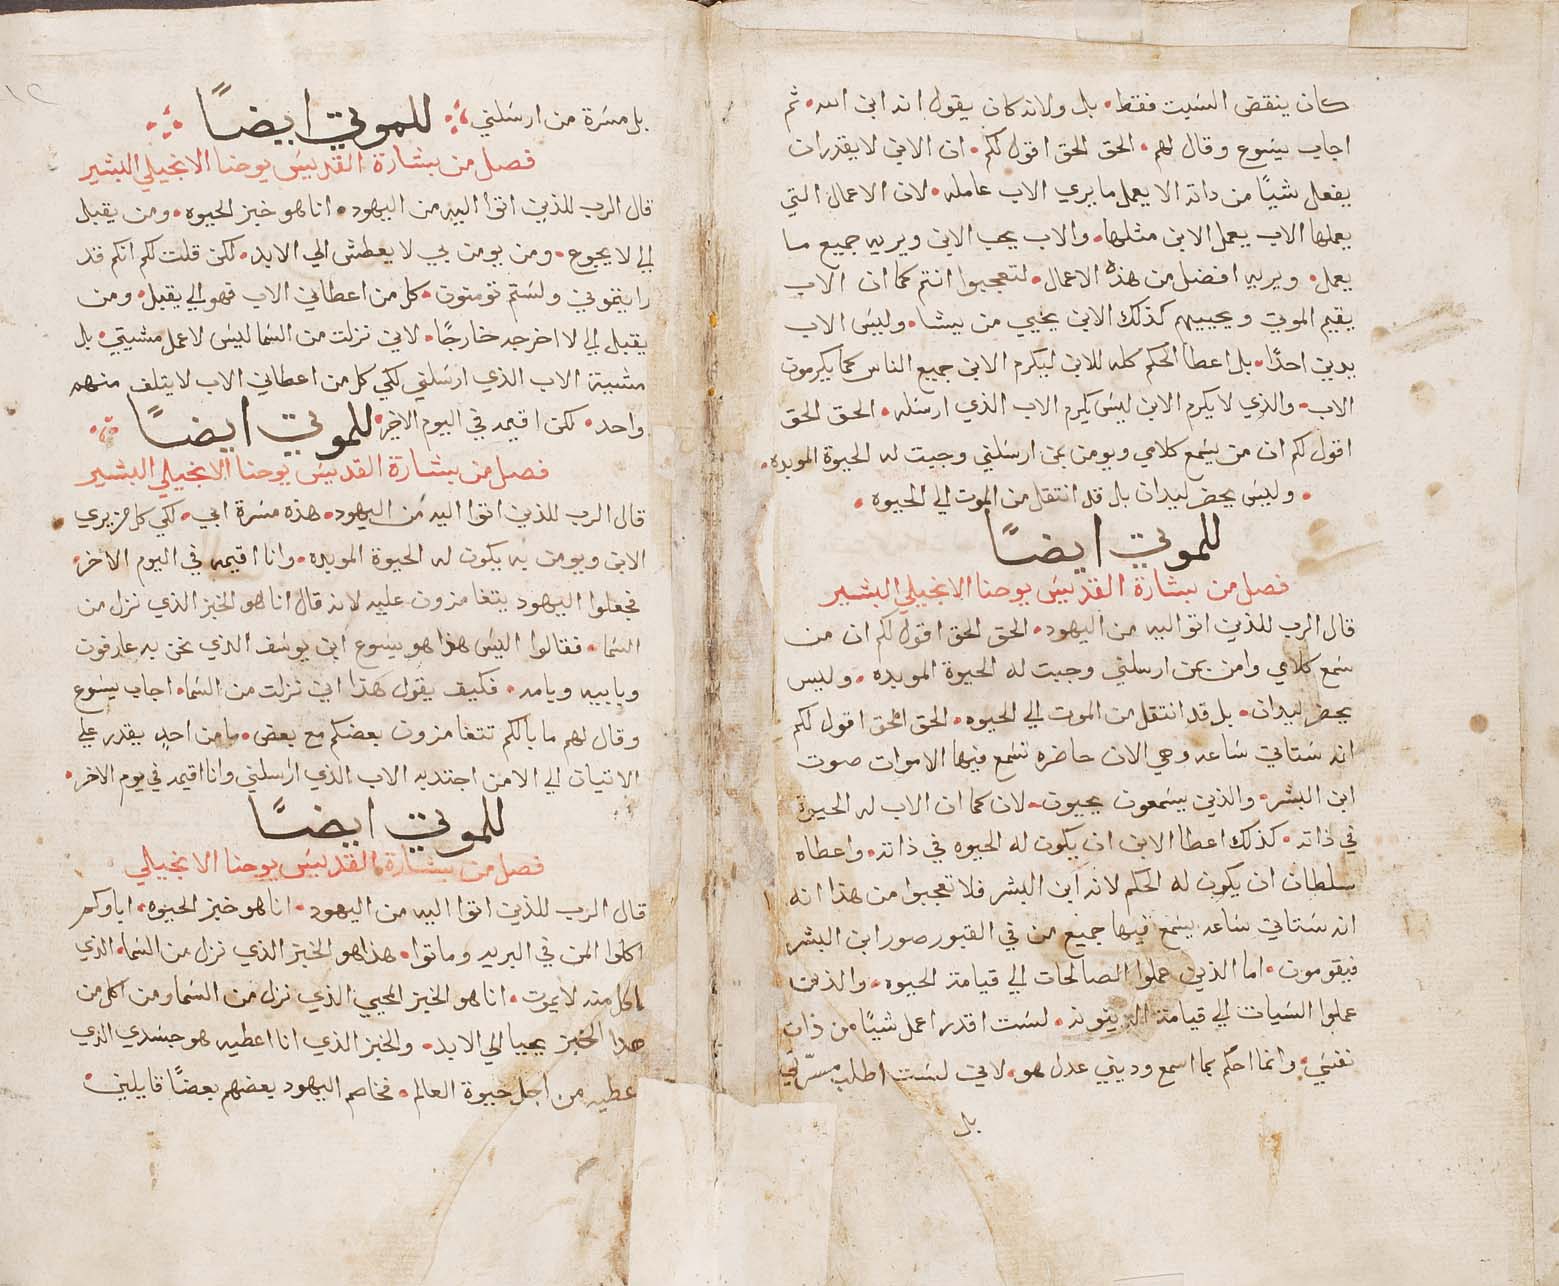 كان ينقض السبت فقط • بل ولانه كان يقول انه ابن الله • ثم
اجاب يسوع وقال لهم • الحق الحق اقول لكم • ان الابن لا يقدر ان
يفعل شيًا من داته الا يعمل ما يري الاب عامله • لان الاعمال التي
يعملها الاب يعمل الابن مثلها • والاب يحب الابن ويريه جميع ما
يعمل • ويريه افضل من هذه الاعمال • لتعجبوا انتم كما ان الاب
يقيم الموتي ويحييهم كذلك الابن يحيي من يشا • وليس الاب
يدين احدًا • بل اعطا الحكم كله للابن ليكرم الابن جميع الناس كما يكرمون
الاب • والذي لا يكرم الابن ليس يكرم الاب الذي ارسله • الحق الحق
اقول لكم ان من يسمع كلامي ويومن بمن ارسلني وجبت له الحيوة الموبده •
• وليس يحضر ليدان بل قد انتقل من الموت الي الحيوه •
للموتي ايضًا
فصل من بشارة القديس يوحنا الانجيلي البشير
قال الرب للذين اتوا اليه من اليهود • الحق الحق اقول لكم ان من
سمع كلامي وامن بمن ارسلني وجبت له الحيوة الموبده • وليس
يحضر ليدان • بل قد انتقل من الموت الي الحيوه • الحق الحق اقول لكم
انه ستاتي ساعه وهي الان حاضره تسمع فيها الاموات صوت
ابن البشر • والذين يسمعون يحيون • لان كما ان الاب له الحيوة
في ذاته • كذلك اعطا الابن ان يكون له الحيوه في ذاته • واعطاه
سلطان ان يكون له الحكم لانه ابن البشر فلا تعجبوا من هدا انه
انه ستاتي ساعه يسمع فيها جميع من في القبور صور ابن البشر
فيقومون • اما الذين عملوا الصالحات الي قيامة الحيوه • والذين
عملوا السيات الي قيامة الدينونه • لست اقدر اعمل شيًا من ذات
نفسي • وانما احكم بما اسمع وديني عدل هو • لاني لست اطلب مسرّتي
بل
بل مسرة من ارسلني • للموتي ايضًا
فصل من بشارة القديس يوحنا الانجيلي البشير
قال الرب للذين اتوا اليه من اليهود • انا هو خبز الحيوه • ومن يقبل
الي لا يجوع • ومن يومن بي لا يعطش الي الابد • لكن قلت لكم انكم قد
رايتموني ولستم تومنون • كل من اعطاني الاب فهو الي يقبل • ومن
يقبل الي لا اخرجه خارجًا • لاني نزلت من السما ليس لاعمل مشيتي • بل
مشيية الاب الذي ارسلني لكي كل من اعطاني الاب لا يتلف منهم
واحد • لكن اقيمه في اليوم الاخير • للموتي ايضًا
فصل من بشارة القديس يوحنا الانجيلي البشير
قال الرب للذين اتوا اليه من اليهود • هذه مسرة ابي • لكي كل من يري
الابن ويومن به يكون له الحيوة الموبده • وانا اقيمه في اليوم الاخر •
فجعلوا اليهود يتغامزون عليه لانه قال انا هو الخبز الذي نزل من
السما • فقالوا اليس هذا هو يسوع ابن يوسف الذي نحن به عارفون
وبابيه وبامه • فكيف يقول هذا اني نزلت من السما • اجاب يسوع
وقال لهم ما بالكم تتغامزون بعضكم مع بعض • ما من احد يقدر علي
الاتيان الي الا من اجتدبه الاب الذي ارسلني وانا اقيمه في يوم الاخر •
للموتي ايضًا
فصل من بشارة القديس يوحنا الانجيلي
قال الرب للذين اتوا اليه من اليهود • انا هو خبز الحيوه • اباوكم
اكلوا المن في البريه وماتوا • هذا هو الخبز الذي نزل من السما • الذي
ياكل منه لا يموت • انا هو الخبز المحيي الذي نزل من السما ومن اكل من
هدا الخبز يحيا الي الابد • والخبز الذي انا اعطيه هو جسدي الذي
اعطيه من اجل حيوة العالم • فخاصم اليهود بعضهم بعضًا قايلين •